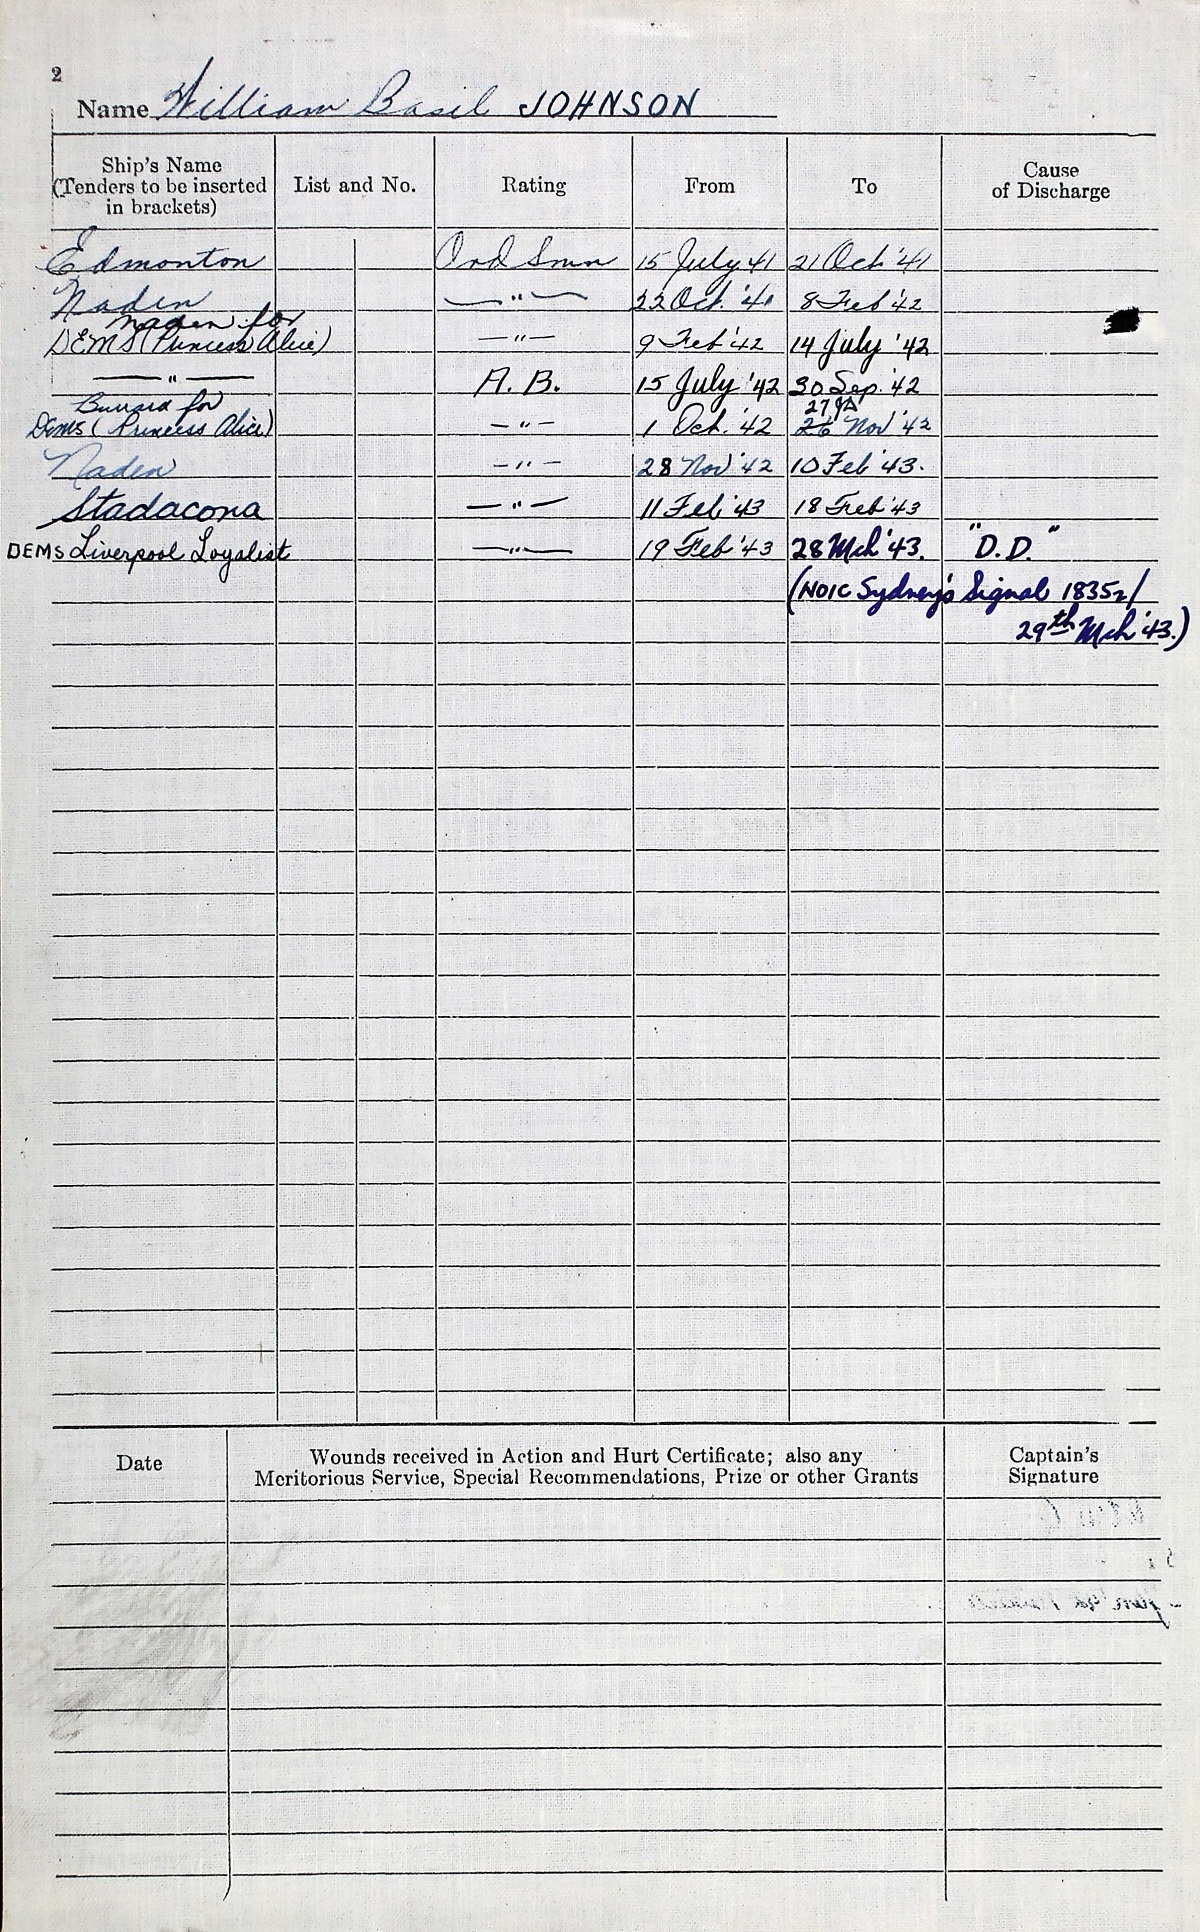 2
Name William Basil JOHNSON
Ship's Name
(Tenders to be inserted
in brackets)
List and No.
Rating
From
To
Cause
of Discharge
Edmonton Ord Smn 15 July 41 21 Oct '41
Naden — " — 22 Oct. '41 8 Feb '42
Naden for
DEMS (Princess Alice) — " — 9 Feb '42 14 July '42
— " — A. B. 15 July '42 30 Sep. '42
Burrard for 27
DEMS (Princess Alice) — " — 1 Oct. '42 26 Nov '42
Naden — " — 28 Nov '42 10 Feb '43.
Stadacona — " — 11 Feb '43 18 Feb '43
DEMS Liverpool Loyalist — " — 19 Feb '43 28 Mch '43. "D.D."
(NOIC Sydney's Signal 1835z/
29th Mch '43.)
Date
Wounds received in Action and Hurt Certificate; also any
Meritorious Service, Special Recommendations, Prize or other Grants
Captain's
Signature